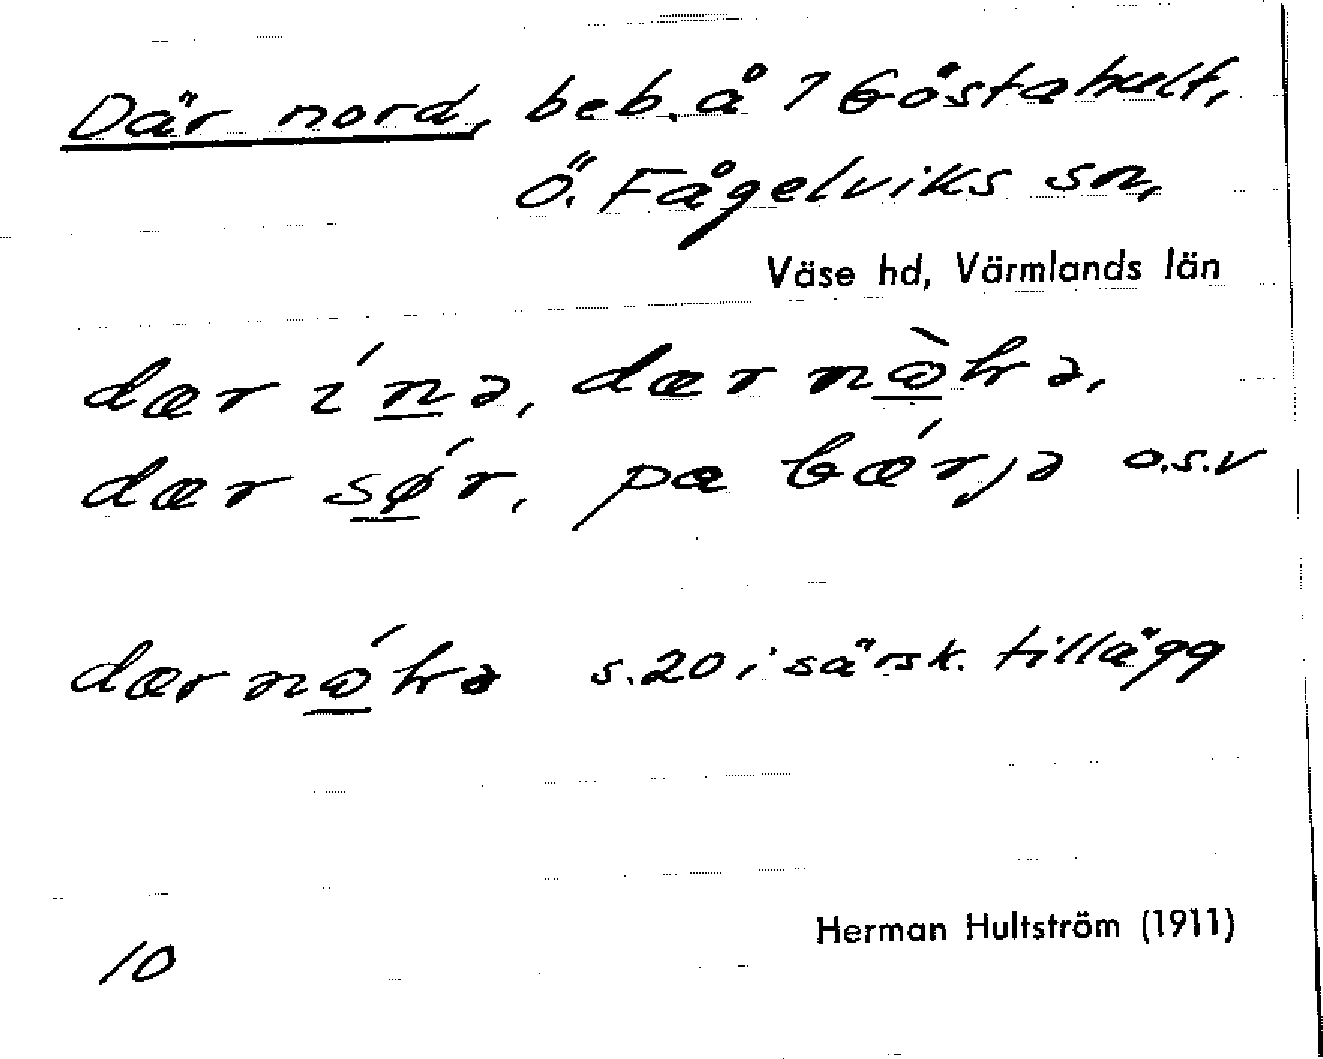 Där nord, beb. å 7 Göstahult,
Ö. Fågelviks sn,
Väse hd, Värmlands län
dær ínə, dær
dær sǿr, pa bǽrjə o.s.v
dær s. 20 i särsk. tillägg
10
Herman Hultström (1911)